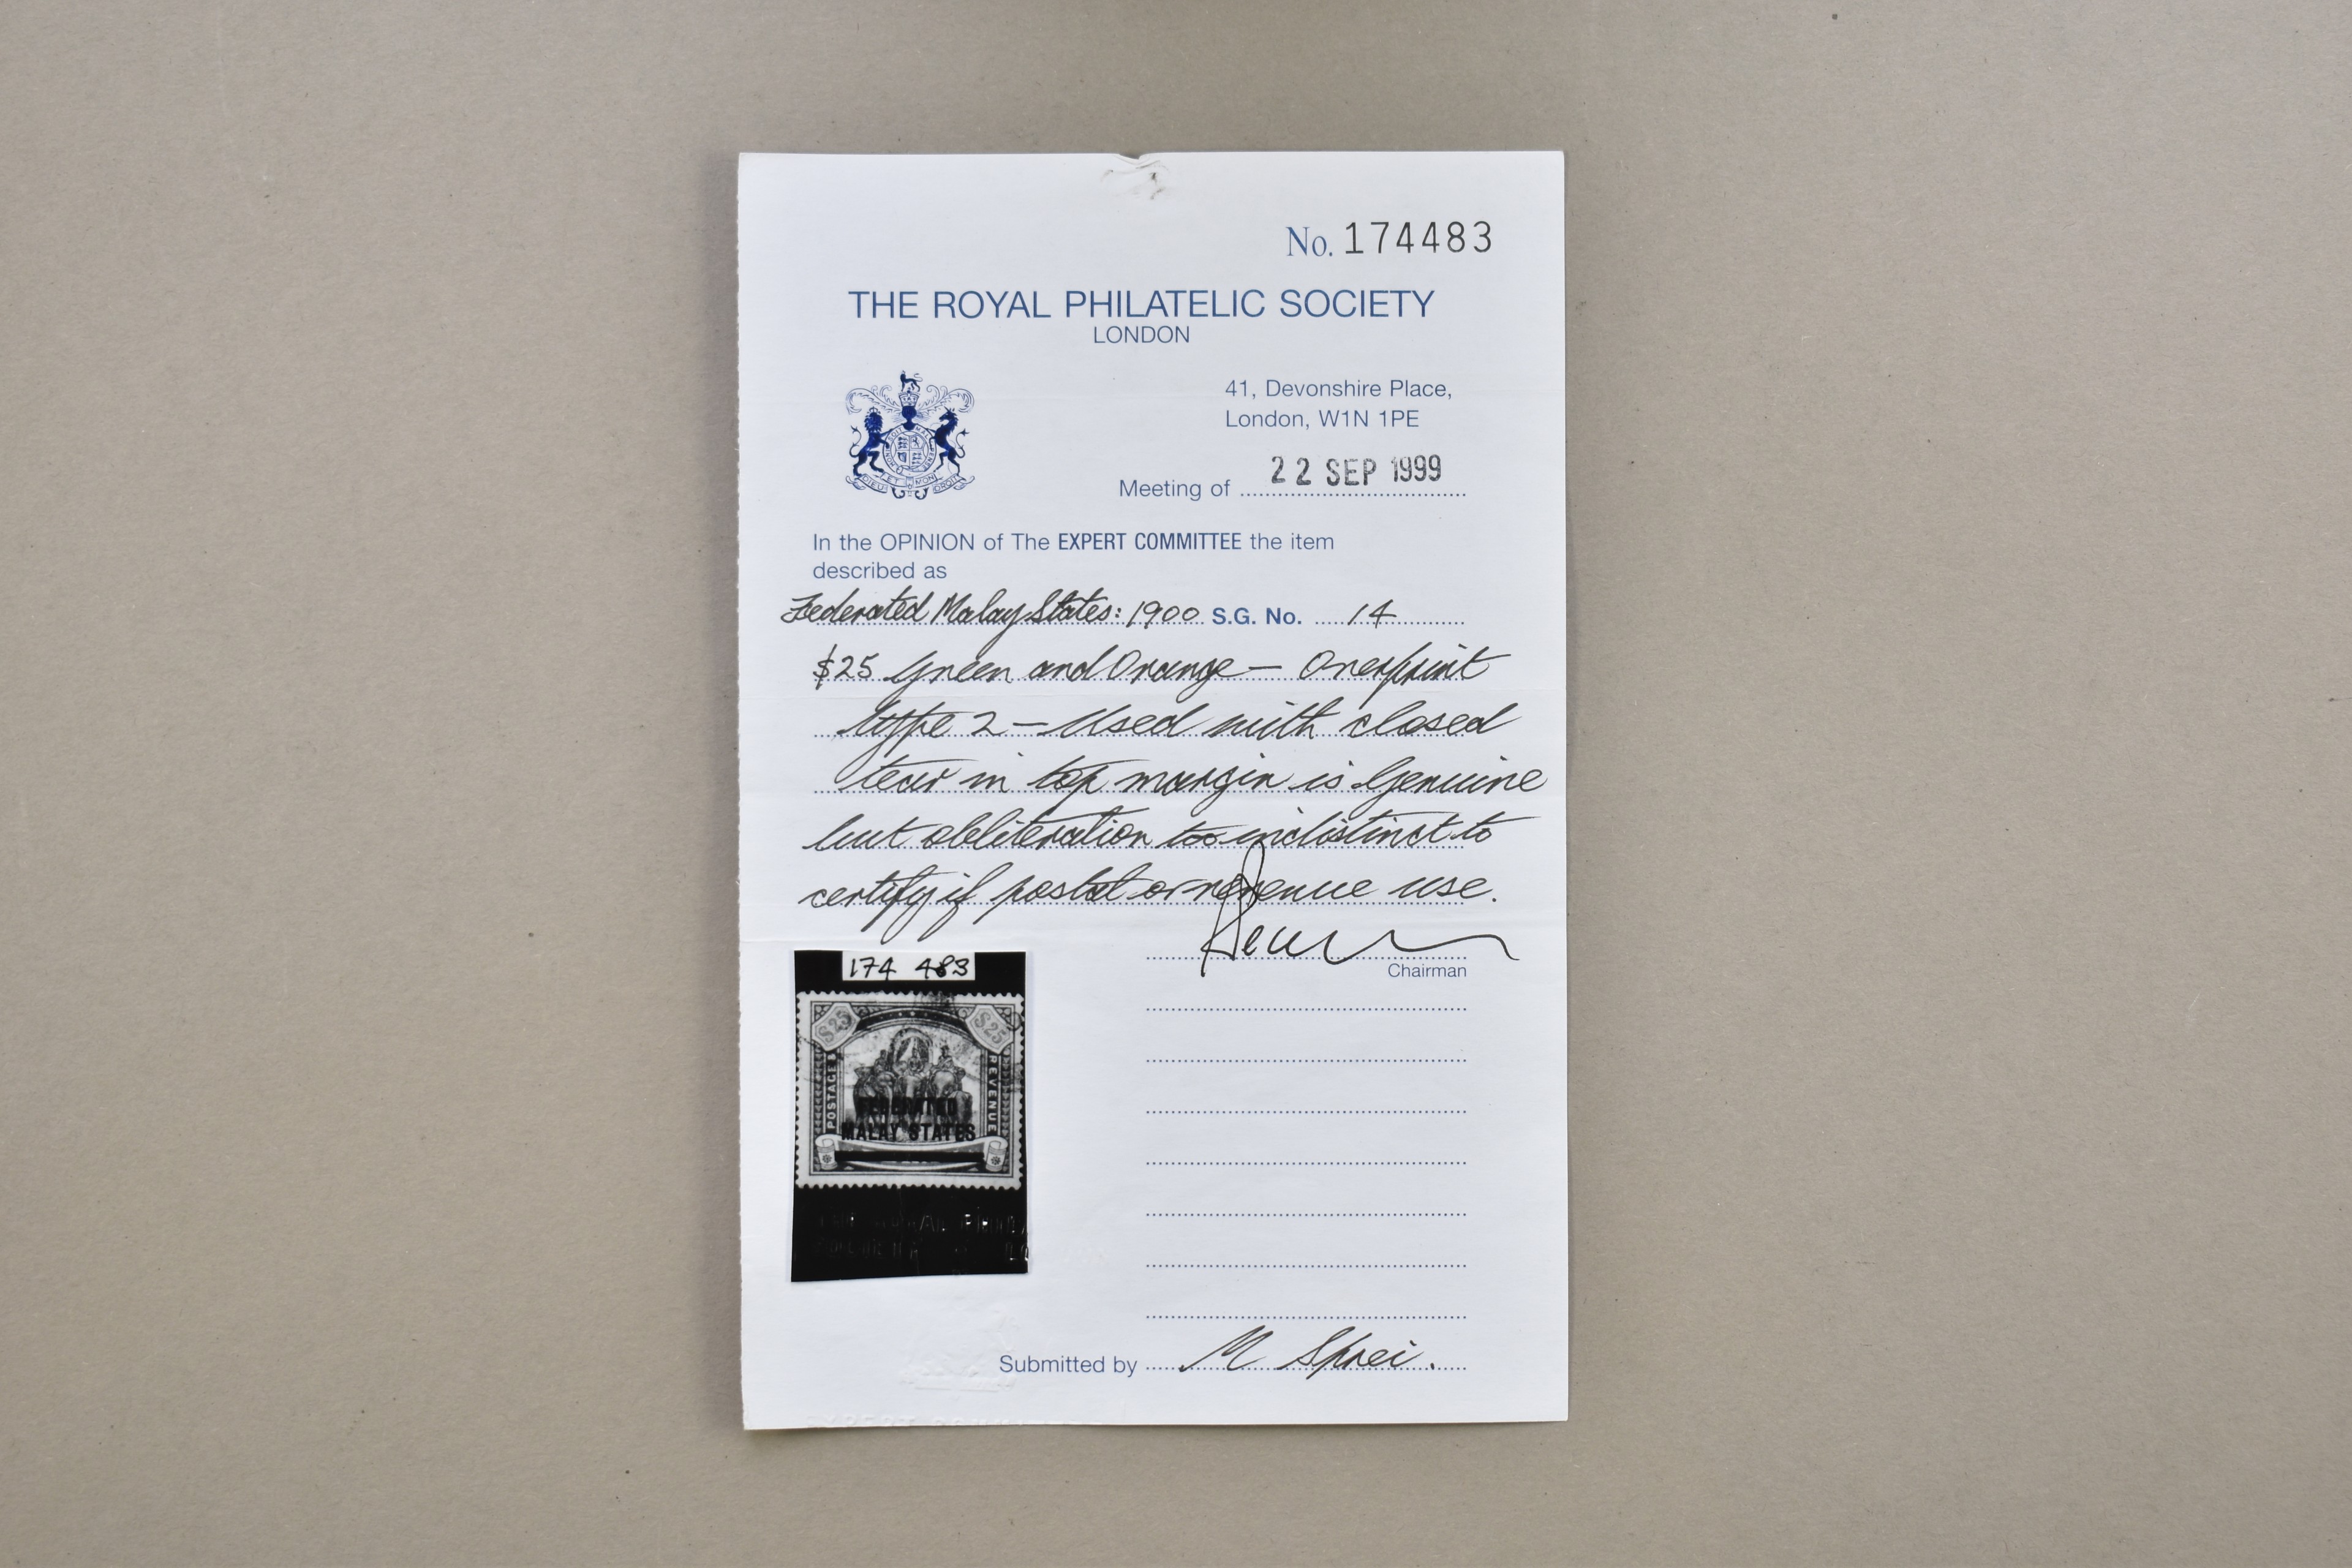 No. 174483
THE ROYAL PHILATELIC SOCIETY
LONDON
41, Devonshire Place,
London, W1N 1PE
Meeting of 22 SEP 1999
In the OPINION of The EXPERT COMMITTEE the item
described as
Federated Malay States: 1900 S.G. No. 14
$25 Green and Orange — Overprint
type 2 — Used with closed
tear in top margin is Genuine
but obliteration too indistinct to
certify if postal or revenue use.
Chairman
174 483
$25 $25
POSTAGE &
REVENUE
FEDERATED
MALAY STATES
Submitted by M Sprei.